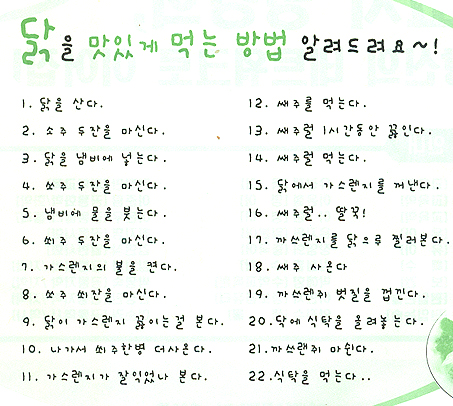 닭을 맛있게 먹는 방법 알려드려요~!
1. 닭을 산다.
2. 소주 두잔을 마신다.
3. 닭을 냄비에 넣는다.
4. 쏘주 두잔을 마신다.
5. 냄비에 물을 붓는다.
6. 쐬주 두잔을 마신다.
7. 가스렌지의 불을 켠다.
8. 쏘주 쇠잔을 마신다.
9. 닭이 가스렌지 끓이는걸 본다.
10. 나가서 쐬주한병 더사온다.
11. 가스렌지가 잘익었나 본다.
12. 쌔주를 먹는다.
13. 쌔주럴 1시간동안 끓인다.
14. 쌔주럴 먹는다.
15. 닭에서 가스렌지를 꺼낸다.
16. 쌔주럴.. 딸꾹!
17. 까쓰렌지를 닭으루 찔러본다.
18. 쌔주 사온다
19. 까쓰렌쥐 벗질을 껍긴다.
20. 닥에 식탁을 올려놓는다.
21. 까쓰랜쥐 마쉰다.
22. 식탁을 먹는다..